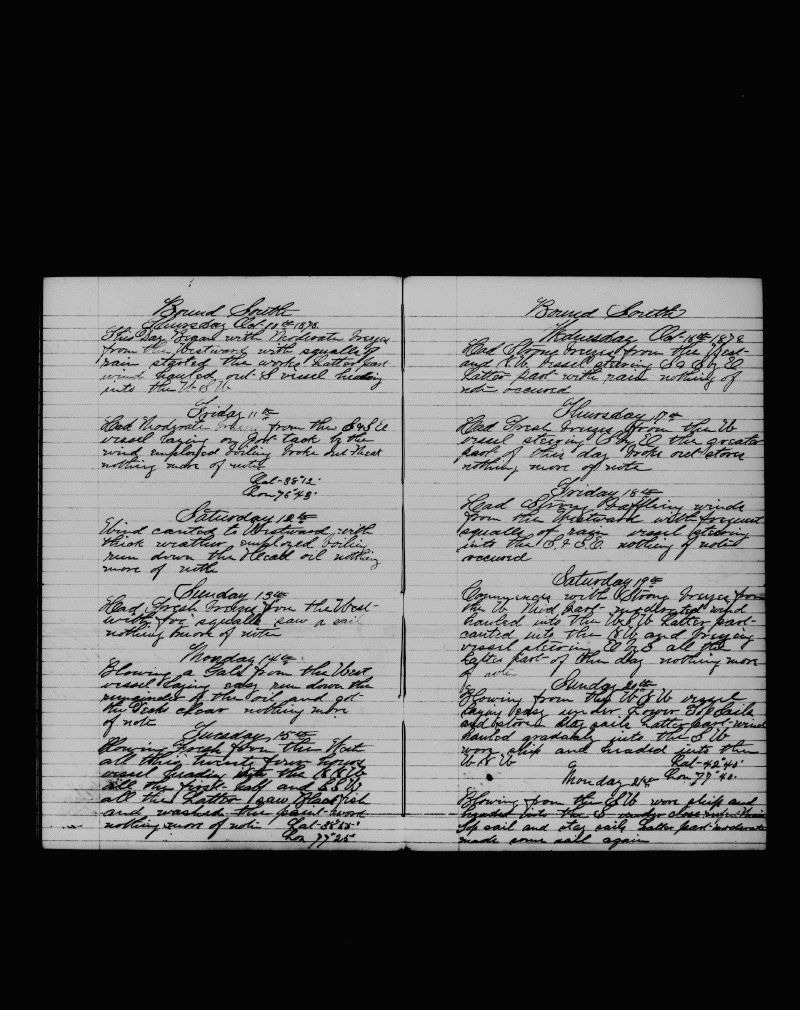 Bound South
Thursday Oct 10th 1878
This Day Began with Moderate breezes
from the Westward with squalls of
rain started the works Latter part
wind hauled out S vessel heading
into the W S W
Friday 11th
Had Moderate breezes from the S & S E
vessel laying on Port tack by the
wind employed boiling broke out Meat
nothing more of note
Lat-38°12'
Lon 76°43'
Saturday 12th
Wind canted to Westward with
thick weather employed boiling
run down the Head oil nothing
more of note
Sunday 13th
Had Fresh breezes from the West-
with fog squalls saw a sail
nothing more of note
Monday 14th
Blowing a Gale from the West
vessel laying easy run down the
remainder of the oil and got
the Decks clear nothing more
of note
Tuesday 15th
Blowing Fresh from the West
all this twenty four hours
vessel heading into the N N W
all the first half and S S W
all the Latter saw Blackfish
and washed the paint-work
nothing more of note Lat-38°55'
Lon 77°25'
Bound South
Wednesday Oct-16th 1878
Had Strong breezes from the West-
and N W vessel steering S & S by E
Latter part with rain nothing of
note occured
Thursday 17th
Had Fresh breezes from the W
vessel steering S by E the greater
part of this day broke out stores
nothing more of note
Friday 18th
Had Strong Baffling winds
from the Westward with frequent
squalls of rain vessel steering
into the S & S E nothing of note
occured
Saturday 19th
Commences with Strong breezes from
the W Mid part moderated wind
hauled into the W S W Latter part-
canted into the N W and breezing
vessel steering S by E all the
Latter part of the day nothing more
of note
Sunday 20th
Blowing from the W S W vessel
laying easy under Lower T. Sails
and storm stay sails Latter part wind
hauled gradualy into the S W
wore ship and headed into the
W N W Lat-42°40'
Monday 21st Lon 77°40'
Blowing from the S W wore ship and
headed into the S under close reef Main
Top sail and stay sails Latter part moderate
made some sail again